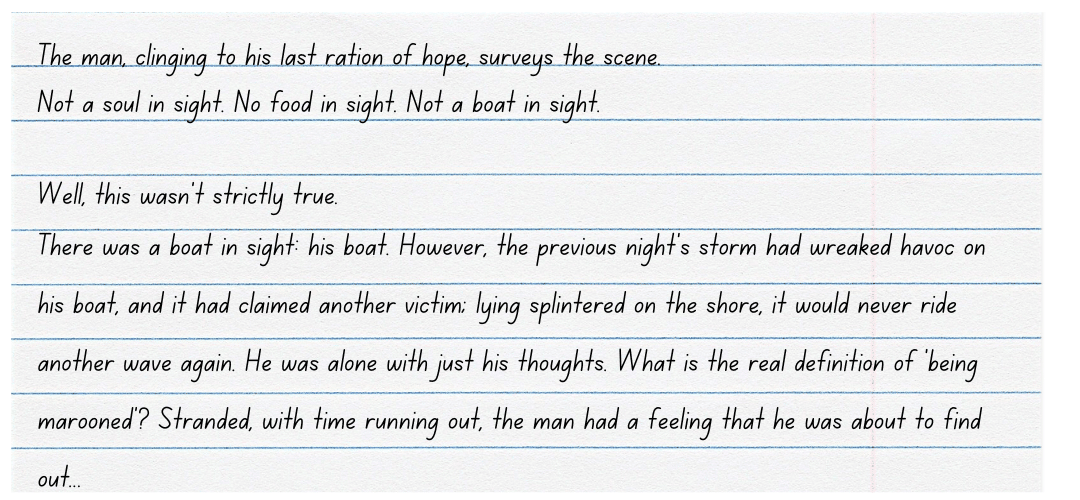 The man, clinging to his last ration of hope, surveys the scene.
Not a soul in sight. No food in sight. Not a boat in sight.
Well, this wasn't strictly true.
There was a boat in sight: his boat. However, the previous night's storm had wreaked havoc on
his boat, and it had claimed another victim; lying splintered on the shore, it would never ride
another wave again. He was alone with just his thoughts. What is the real definition of 'being
marooned'? Stranded, with time running out, the man had a feeling that he was about to find
out...